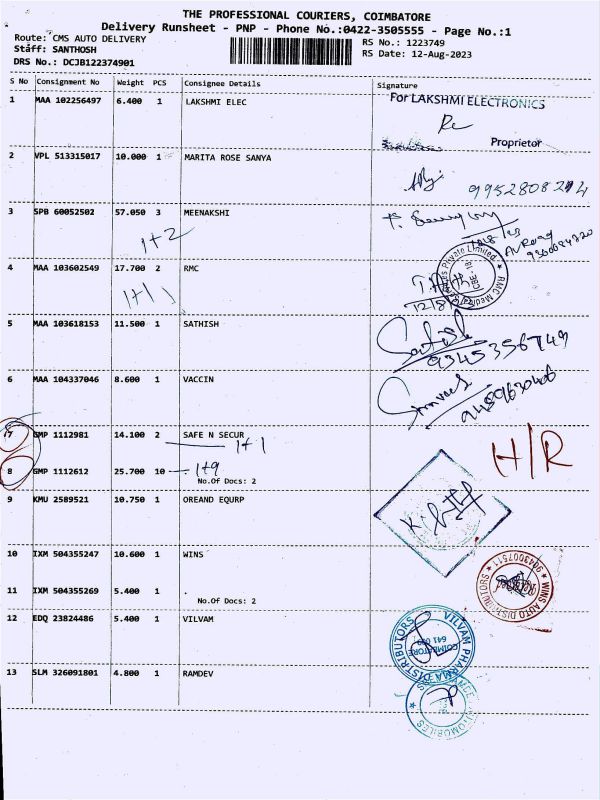 THE PROFESSIONAL COURIERS, COIMBATORE
Delivery Runsheet - PNP - Phone No.:0422-3505555 - Page No.:1
Route: CMS AUTO DELIVERY
RS No.: 1223749
Staff: SANTHOSH
RS Date: 12-Aug-2023
DRS No.: DCJB122374901
S No Consignment No Weight PCS Consignee Details Signature
1 MAA 102256497 6.400 1 LAKSHMI ELEC
For LAKSHMI ELECTRONICS
Proprietor
2 VPL 513315017 10.000 1 MARITA ROSE SANYA
3 SPB 60052502 57.050 3 MEENAKSHI
1+2
4 MAA 103602549 17.700 2 RMC
1+1
5 MAA 103618153 11.500 1 SATHISH
Sathish
9345356749
6 MAA 104337046 8.600 1 VACCIN
7 GMP 1112981 14.100 2 SAFE N SECUR
1+1
H/R
8 GMP 1112612 25.700 10
1+9
No.Of Docs: 2
9 KMU 2589521 10.750 1 OREAND EQURP
10 IXM 504355247 10.600 1 WINS
WINS AUTO DISTRIBUTORS
9043007511
11 IXM 504355269 5.400 1 .
No.Of Docs: 2
12 EDQ 23824486 5.400 1 VILVAM
VILVAM PHARMA DISTRIBUTORS
COIMBATORE
13 SLM 326091801 4.800 1 RAMDEV